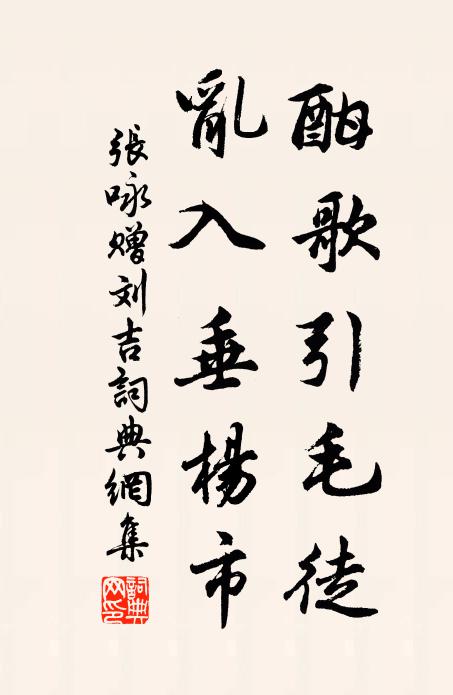 酣歌引毛徒
亂入垂楊市
張咏贈刘吉詞典網集
詞典网印